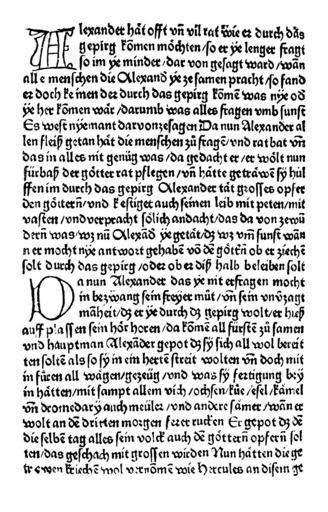 Alexander hat offt vñ vil rat wie er durch das
gepirg kömen möchten/so er ye lenger fragt
so im ye minder/dar von gesagt ward/wañ
all e menschen die Alexand̄ ye zesamen pracht/so fand
er doch ke inen der durch das gepirg kömē was nye od̄
ye her kömen wär/darumb was alles fragen vmb sunst
Es west nyemant darvonzesagen Da nun Alexander al
len fleiß getan hät die menschen zů fragē/und rat bat vñ
das in alles nit genůg was/da gedacht er/er wölt nun
fürbaß der götter rat pflegen/vñ hätte geträwē sÿ hül
ffen im durch das gepirg Alexander tät grosses opfer
den göttern/und k estiget auch seinen leib mit peten/mit
vasten/und verpracht sölich andacht/das da von zewū
dern was/wz nū Alexād̄ ye getät/dz wz vm̄ sunst wañ
n er mocht nye antwort gehabē vō dē göttñ ob er ziehē
solt durch das gepirg/oder ob er diß halb beleiben solt
Da nun Alexander das ye nit erfragen mocht
in bezwāg sein freyer můt/vñ sein vnv̈zagt
māheit/dz er ye durch dz gepirg wolt/er hieß
auff plasen sein hör horen/da kömē all fürstē zů samen
und hauptman Alexād̄er gepot dz sÿ sich all wol bereit
ten soltē als so sÿ in ein hertē streit wolten vñ doch mit
in fürē all wägen/gezeüg/und was sÿ fertigung bey
in hätten/mit sampt allem vich/ochsen/küe/esel/kämel
vñ dromedarÿ auch meüler/und andere sämer/wañ er
wolt an dē dritten morgen ferer rucken Er gepot dz dē
die selbē tag alles sein volck auch dē göttern opfern sol
ten/das geschach mit grossen wirden Nun hätten die ge
kriechē wol vernömē wie Hercules an disem ge